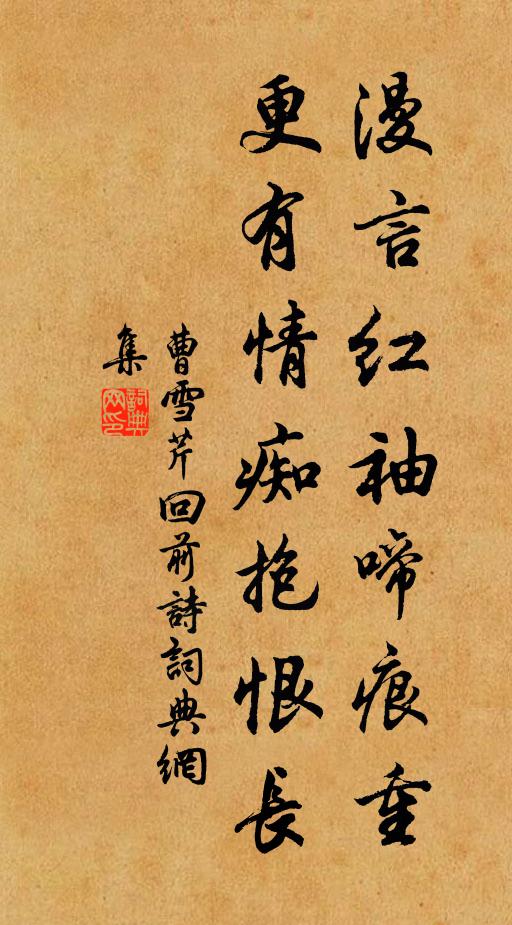 漫言红袖啼痕重
更有情痴抱恨長
曹雪芹回前詩詞典網
集
詞典网印